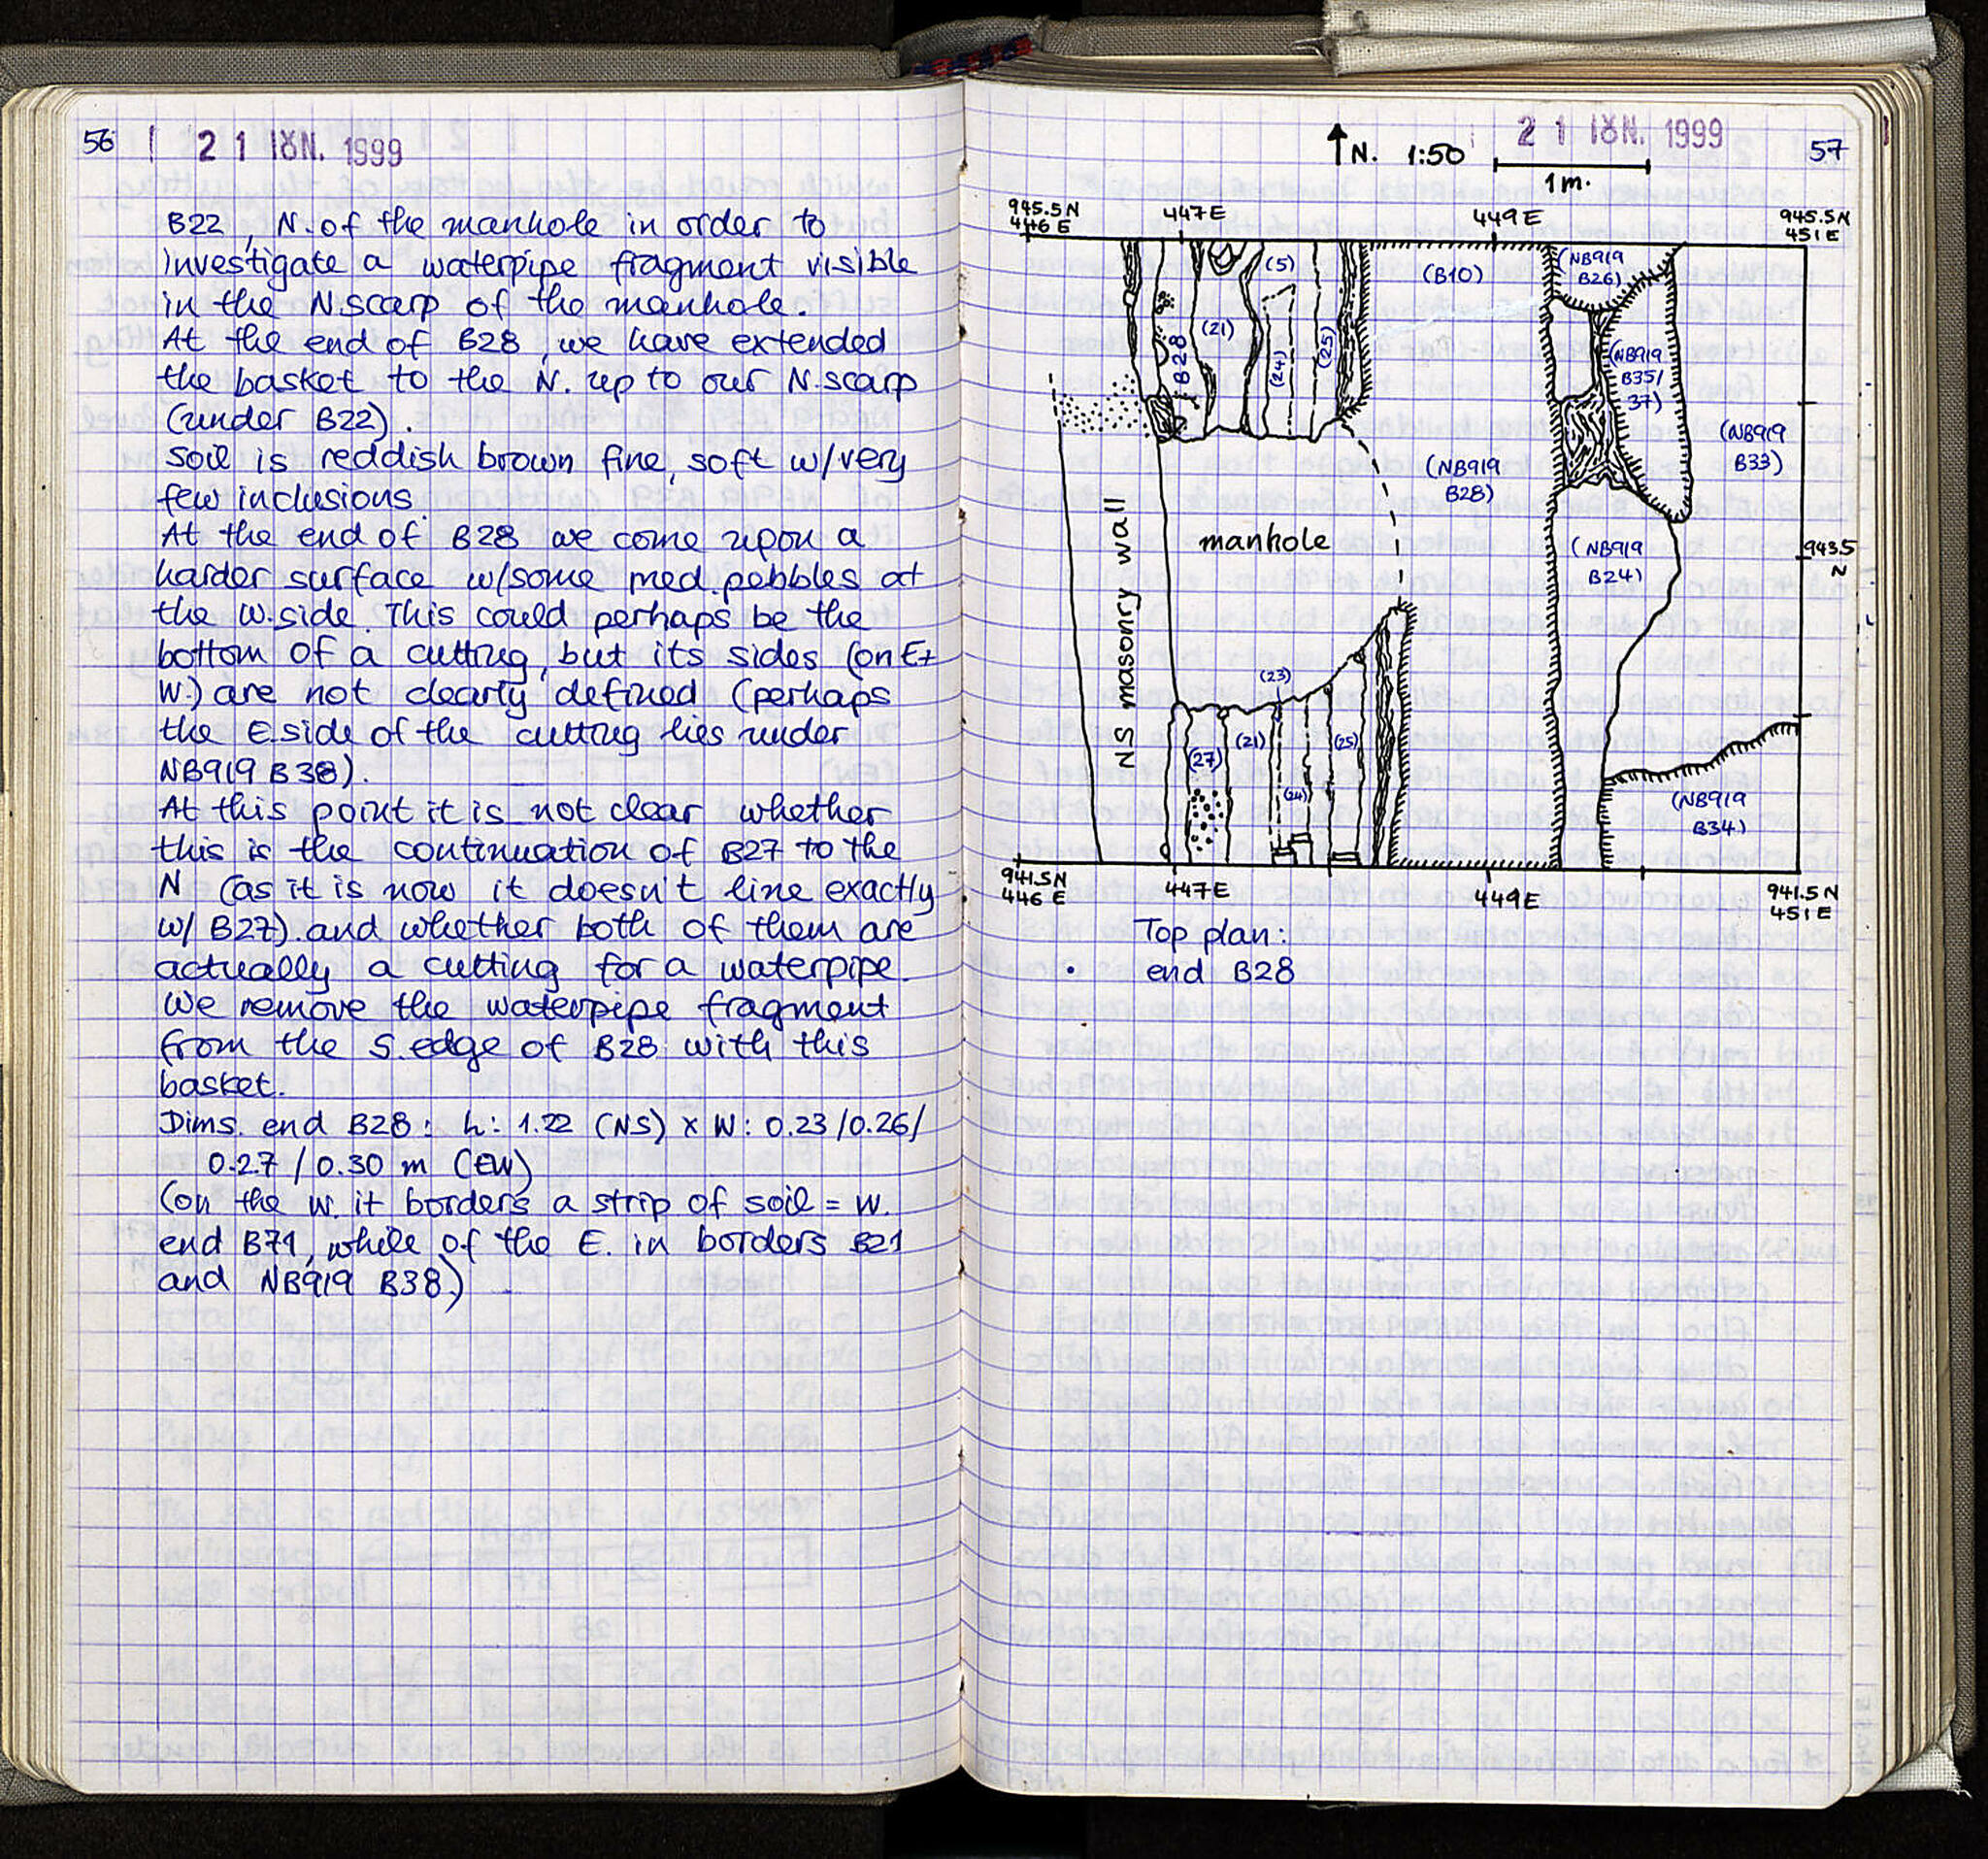 56
21 ΙΟΥΝ. 1999
B22, N. of the manhole in order to
investigate a waterpipe fragment visible
in the N scarp of the manhole.
At the end of B28, we have extended
the basket to the N. up to our N. scarp
(under B22).
soil is reddish brown fine, soft w/very
few inclusions.
At the end of B28 we come upon a
harder surface w/some med. pebbles at
the W. side. This could perhaps be the
bottom of a cutting, but its sides (on E+
W.) are not clearly defined (perhaps
the E. side of the cutting lies under
NB919 B38).
At this point it is not clear whether
this is the continuation of B27 to the
N (as it is now it doesn't line exactly
w/ B27). and whether both of them are
actually a cutting for a waterpipe.
We remove the waterpipe fragment
from the S. edge of B28 with this
basket.
Dims. end B28: h: 1.22 (NS) x W: 0.23/0.26/
0.27/0.30 m (EW)
(on the W. it borders a strip of soil = W.
end B71, while of the E. in borders B21
and NB919 B38.)
21 ΙΟΥΝ. 1999
57
N. 1:50
1m.
945.5N
446 E
447E
449 E
945.5N
451 E
(5)
(B10)
(NB919
B26)
(21)
B28
(24)
(25)
(NB919
B35/
37)
(NB919
B33)
(NB919
B28)
NS masonry wall
manhole
(NB919
B24)
943.5
N
(23)
(27)
(21)
(24)
(25)
(NB919
B34)
941.5N
446 E
447E
449E
941.5N
451E
Top plan:
end B28